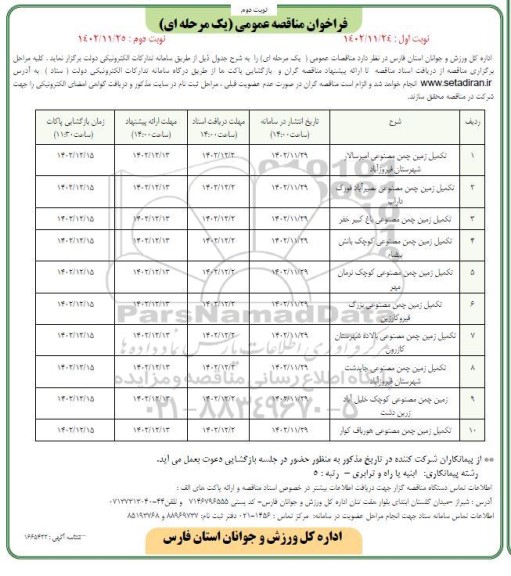 نوبت دوم
فراخوان مناقصه عمومی (یک مرحله ای)
نوبت اول : ۱۴۰۲/۱۱/۲۴
نوبت دوم : ۱۴۰۲/۱۱/۲۵
اداره کل ورزش و جوانان استان فارس در نظر دارد مناقصات عمومی ( یک مرحله ای) را به شرح جدول ذیل از طریق سامانه تدارکات الکترونیکی دولت برگزار نماید . کلیه مراحل
برگزاری مناقصه از دریافت اسناد مناقصه تا ارائه پیشنهاد مناقصه گران و بازگشایی پاکت ها از طریق درگاه سامانه تدارکات الکترونیکی دولت ( ستاد ) به آدرس
www.setadiran.ir انجام خواهد شد و الزام است مناقصه گران در صورت عدم عضویت قبلی ، مراحل ثبت نام در سایت مذکور و دریافت گواهی امضای الکترونیکی را جهت
شرکت در مناقصه محقق سازند.
ردیف شرح تاریخ انتشار در سامانه (ساعت۱۴:۰۰) مهلت دریافت اسناد (ساعت۱۴:۰۰) مهلت ارائه پیشنهاد (ساعت۱۴:۰۰) زمان بازگشایی پاکات (ساعت۱۱:۳۰)
۱ تکمیل زمین چمن مصنوعی امیرسالار شهرستان فیروزآباد ۱۴۰۲/۱۱/۲۹ ۱۴۰۲/۱۲/۲ ۱۴۰۲/۱۲/۱۳ ۱۴۰۲/۱۲/۱۵
۲ تکمیل زمین چمن مصنوعی نصیرآباد فورگ داراب ۱۴۰۲/۱۱/۲۹ ۱۴۰۲/۱۲/۲ ۱۴۰۲/۱۲/۱۳ ۱۴۰۲/۱۲/۱۵
۳ تکمیل زمین چمن مصنوعی باغ کبیر خفر ۱۴۰۲/۱۱/۲۹ ۱۴۰۲/۱۲/۲ ۱۴۰۲/۱۲/۱۳ ۱۴۰۲/۱۲/۱۵
۴ تکمیل زمین چمن مصنوعی کوچک ۱۴۰۲/۱۱/۲۹ ۱۴۰۲/۱۲/۲ ۱۴۰۲/۱۲/۱۳ ۱۴۰۲/۱۲/۱۵
۵ تکمیل زمین چمن مصنوعی کوچک نرمان مهر ۱۴۰۲/۱۱/۲۹ ۱۴۰۲/۱۲/۲ ۱۴۰۲/۱۲/۱۳ ۱۴۰۲/۱۲/۱۵
۶ تکمیل زمین چمن مصنوعی بزرگ قیروکارزین ۱۴۰۲/۱۱/۲۹ ۱۴۰۲/۱۲/۲ ۱۴۰۲/۱۲/۱۳ ۱۴۰۲/۱۲/۱۵
۷ تکمیل زمین چمن مصنوعی بالاده شهرستان کازرون ۱۴۰۲/۱۱/۲۹ ۱۴۰۲/۱۲/۲ ۱۴۰۲/۱۲/۱۳ ۱۴۰۲/۱۲/۱۵
۸ تکمیل زمین چمن مصنوعی جایدشت شهرستان فیروزآباد ۱۴۰۲/۱۱/۲۹ ۱۴۰۲/۱۲/۲ ۱۴۰۲/۱۲/۱۳ ۱۴۰۲/۱۲/۱۵
۹ زمین چمن مصنوعی کوچک خلیل آباد زرین دشت ۱۴۰۲/۱۱/۲۹ ۱۴۰۲/۱۲/۲ ۱۴۰۲/۱۲/۱۳ ۱۴۰۲/۱۲/۱۵
۱۰ تکمیل زمین چمن مصنوعی هورباف کوار ۱۴۰۲/۱۱/۲۹ ۱۴۰۲/۱۲/۲ ۱۴۰۲/۱۲/۱۳ ۱۴۰۲/۱۲/۱۵
ParsNamadData
پایگاه اطلاع رسانی مناقصه و مزایده
۰۲۱-۸۸۳۴۹۶۷۰-۵
** از پیمانکاران شرکت کننده در تاریخ مذکور به منظور حضور در جلسه بازگشایی دعوت بعمل می آید.
رشته پیمانکاری: ابنیه یا راه و ترابری – رتبه : ۵
اطلاعات تماس دستگاه مناقصه گزار جهت دریافت اطلاعات بیشتر در خصوص اسناد مناقصه و ارائه پاکت های الف :
آدرس : شیراز –میدان گلستان ابتدای بلوار هفت تنان اداره کل ورزش و جوانان فارس– کد پستی ۷۱۴۶۷۹۶۵۵۵ و تلفن۴۴-۰۷۱۳۷۳۱۲۰۴۰
اطلاعات تماس سامانه ستاد جهت انجام مراحل عضویت در سامانه: مرکز تماس : ۱۴۵۶-۰۲۱ دفتر ثبت نام: ۸۸۹۶۹۷۳۷ و ۸۵۱۹۳۷۶۸
شناسه آگهی : ۱۶۶۵۴۲۲
اداره کل ورزش و جوانان استان فارس